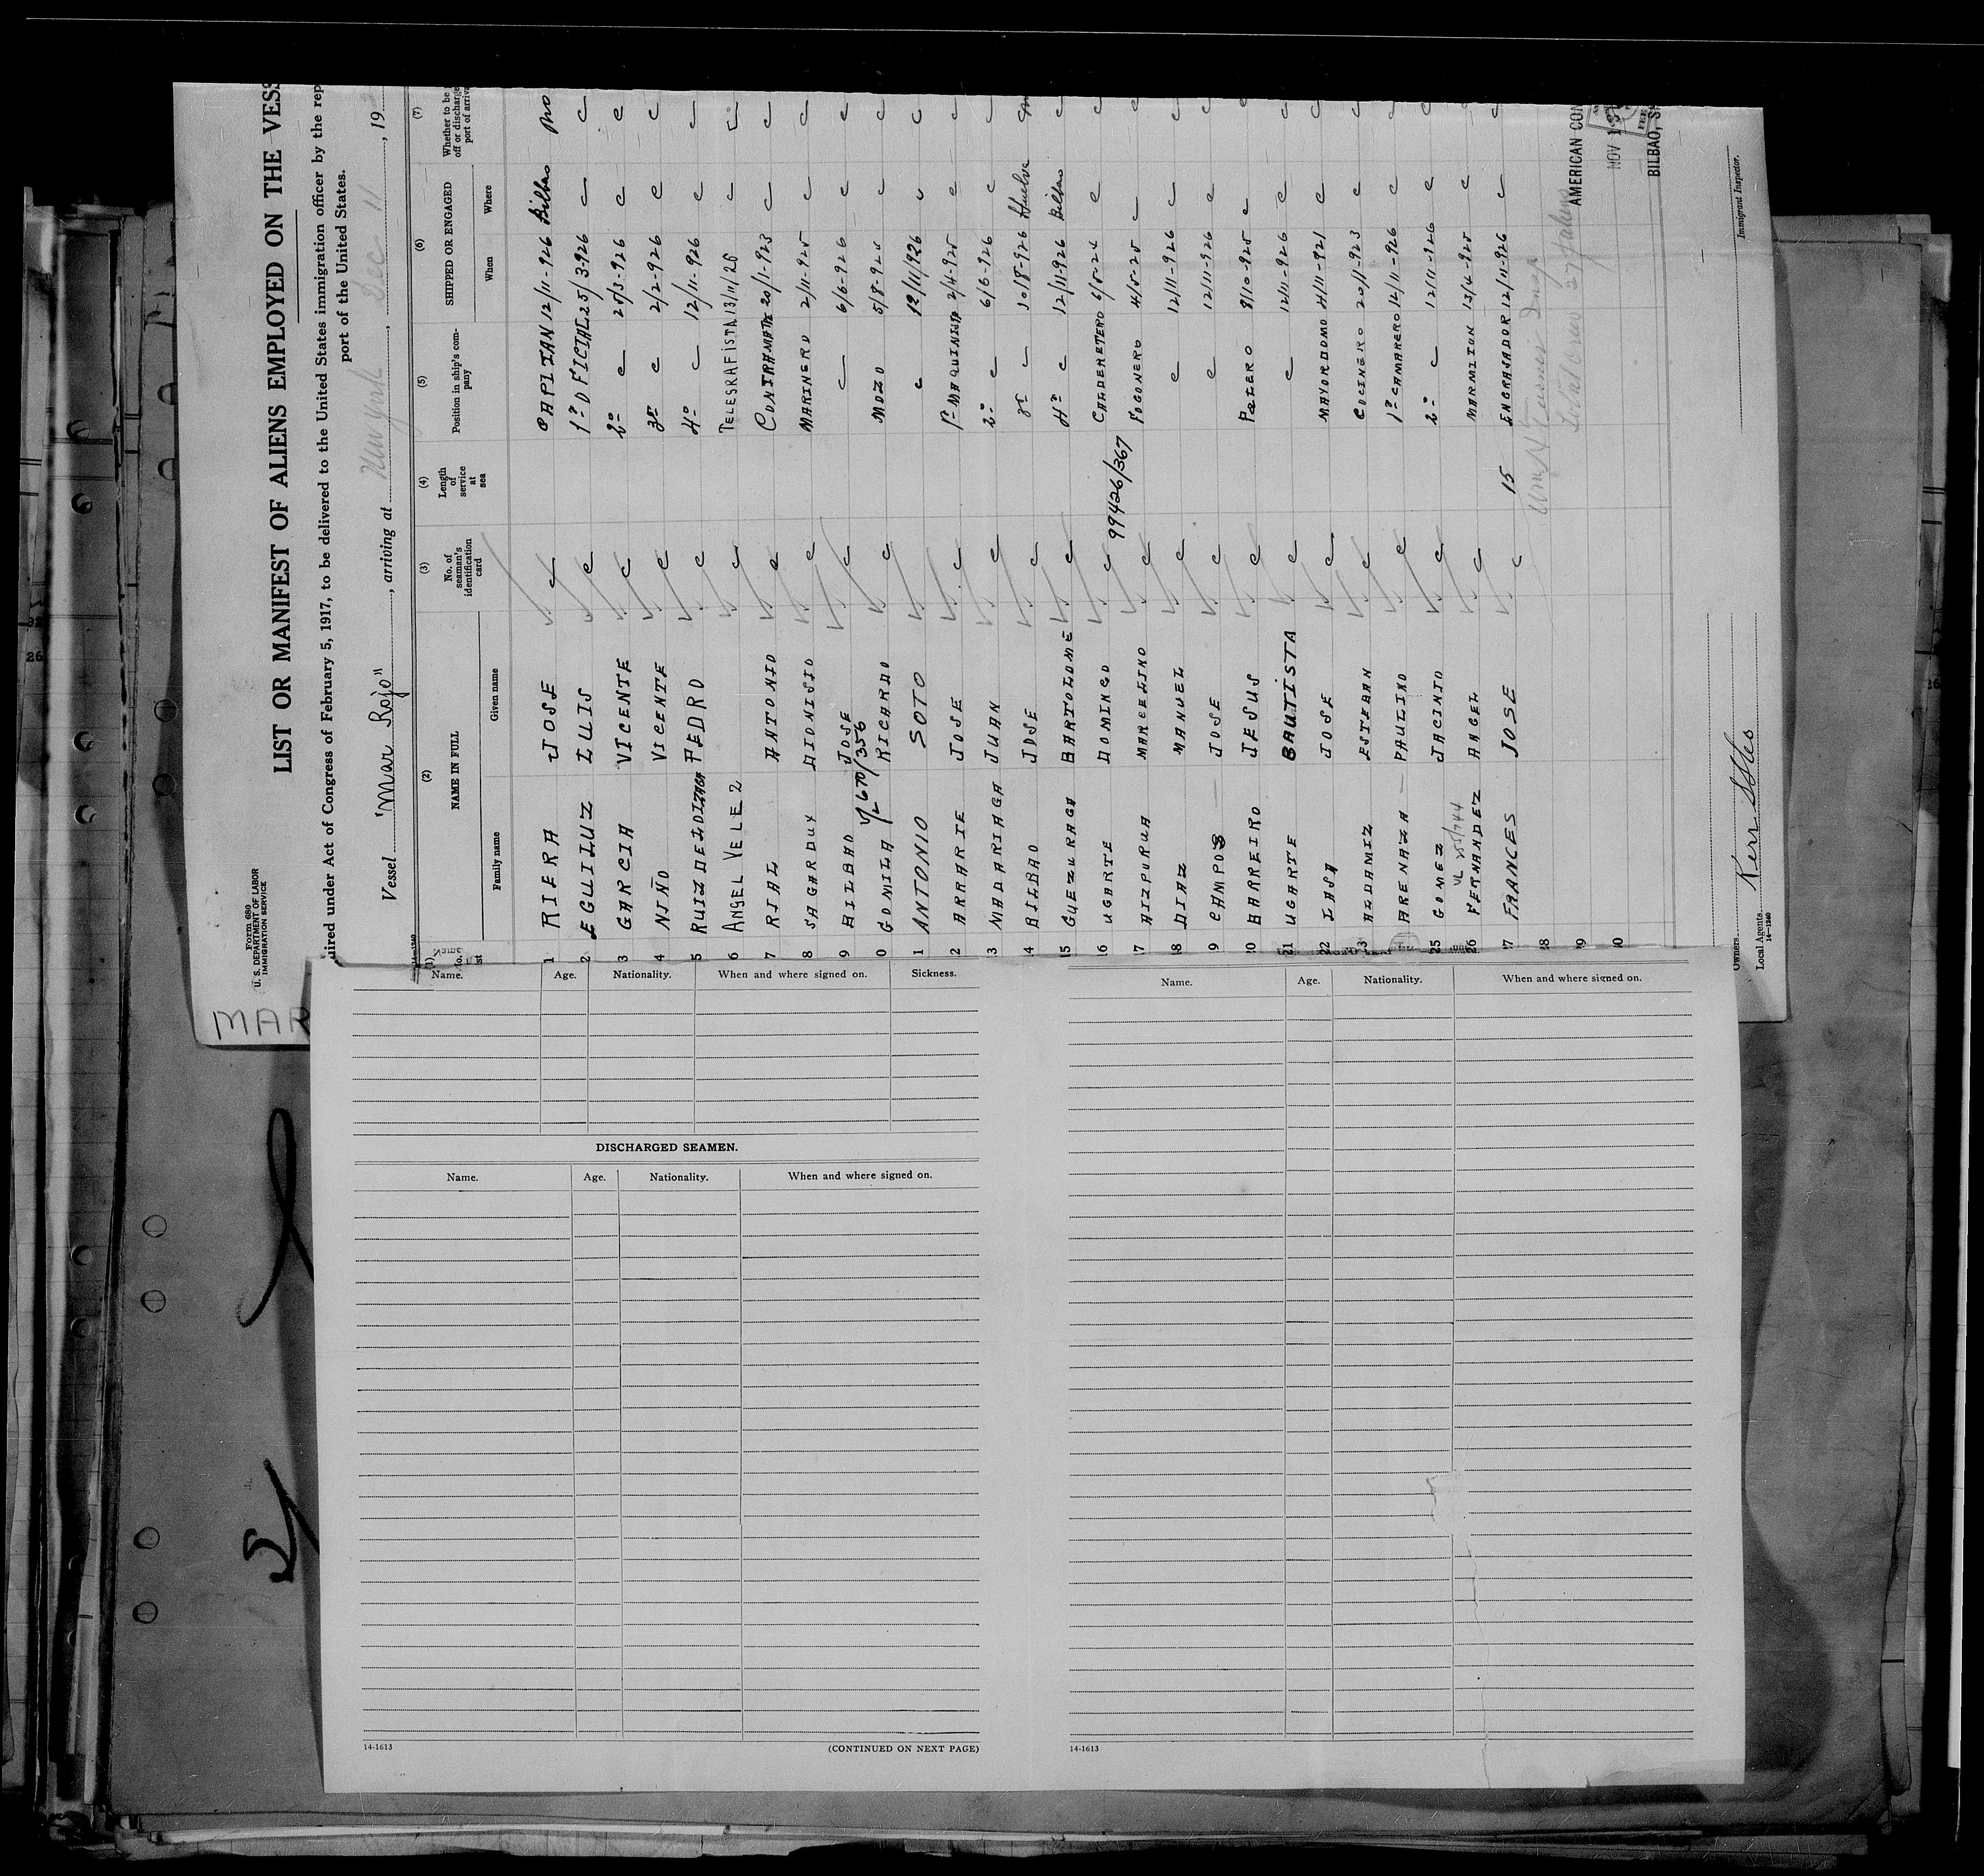 Form 680
U. S. DEPARTMENT OF LABOR
IMMIGRATION SERVICE
LIST OR MANIFEST OF ALIENS EMPLOYED ON THE VESS
uired under Act of Congress of February 5, 1917, to be delivered to the United States immigration officer by the rep
port of the United States.
Vessel "Mar Rojo", arriving at New York, Dec 11, 19
(1) (2) (3) (4) (5) (6) (7)
NAME IN FULL
Family name Given name
No. of seaman's identification card
Length of service at sea
Position in ship's company
SHIPPED OR ENGAGED
When Where
Whether to be
off or discharge
port of arriva
1 RIERA JOSE CAPITAN 12/11-926 Bilbao No
2 EGUILUZ LUIS 1º OFICIAL 25/3-926
3 GARCIA VICENTE 2º 25/3-926
4 NIÑO VICENTE 3º 2/2-926
5 RUIZ DE LOIZAGA PEDRO 4º 12/11-926
6 ANGEL VELEZ TELEGRAFISTA 13/11/26
7 RIAL ANTONIO CONTRAMATRE 20/1-923
8 SAGARDUY DIONISIO MARINERO 2/11-925
9 BILBAO JOSE 6/6-926
V/L 670/356
0 GOMILA RICARDO MOZO 5/8-925
1 ANTONIO SOTO 12/11/926
2 ARRARTE JOSE 1º MAQUINISTA 2/4-925
3 MADARIAGA JUAN 2º 6/6-926
14 BILBAO JOSE 3º 10/8-926 Huelva
15 GUEZURAGA BARTOLOME 4º 12/11-926 Bilbao
16 UGARTE DOMINGO CALDERETERO 6/5-24
99426/367
17 AIZPURUA MARCELINO FOGONERO 4/5-25
18 DIAZ MANUEL 12/11-926
9 CAMPOS JOSE 12/11-926
20 BARREIRO JESUS PALERO 8/10-925
21 UGARTE BAUTISTA 12/11-926
22 LASA JOSE MAYORDOMO 4/11-921
23 ALDAMIZ ESTEBAN COCINERO 20/11-923
ARENAZA PAULINO 1º CAMARERO 12/11-926
25 GOMEZ JACINTO 2º 12/11-926
VL 25/744
26 FERNANDEZ ANGEL MARMITON 13/4-925
27 FRANCES JOSE 15 ENGRASADOR 12/11-926
28
29
30
Total crew 27 Aliens
AMERICAN CON
NOV
BILBAO, S
Owners
Local Agents Kerr SS Co
14-1240
Immigrant Inspector.
MAR
Name. Age. Nationality. When and where signed on. Sickness.
DISCHARGED SEAMEN.
Name. Age. Nationality. When and where signed on.
14-1613 (CONTINUED ON NEXT PAGE)
Name. Age. Nationality. When and where signed on.
14-1613